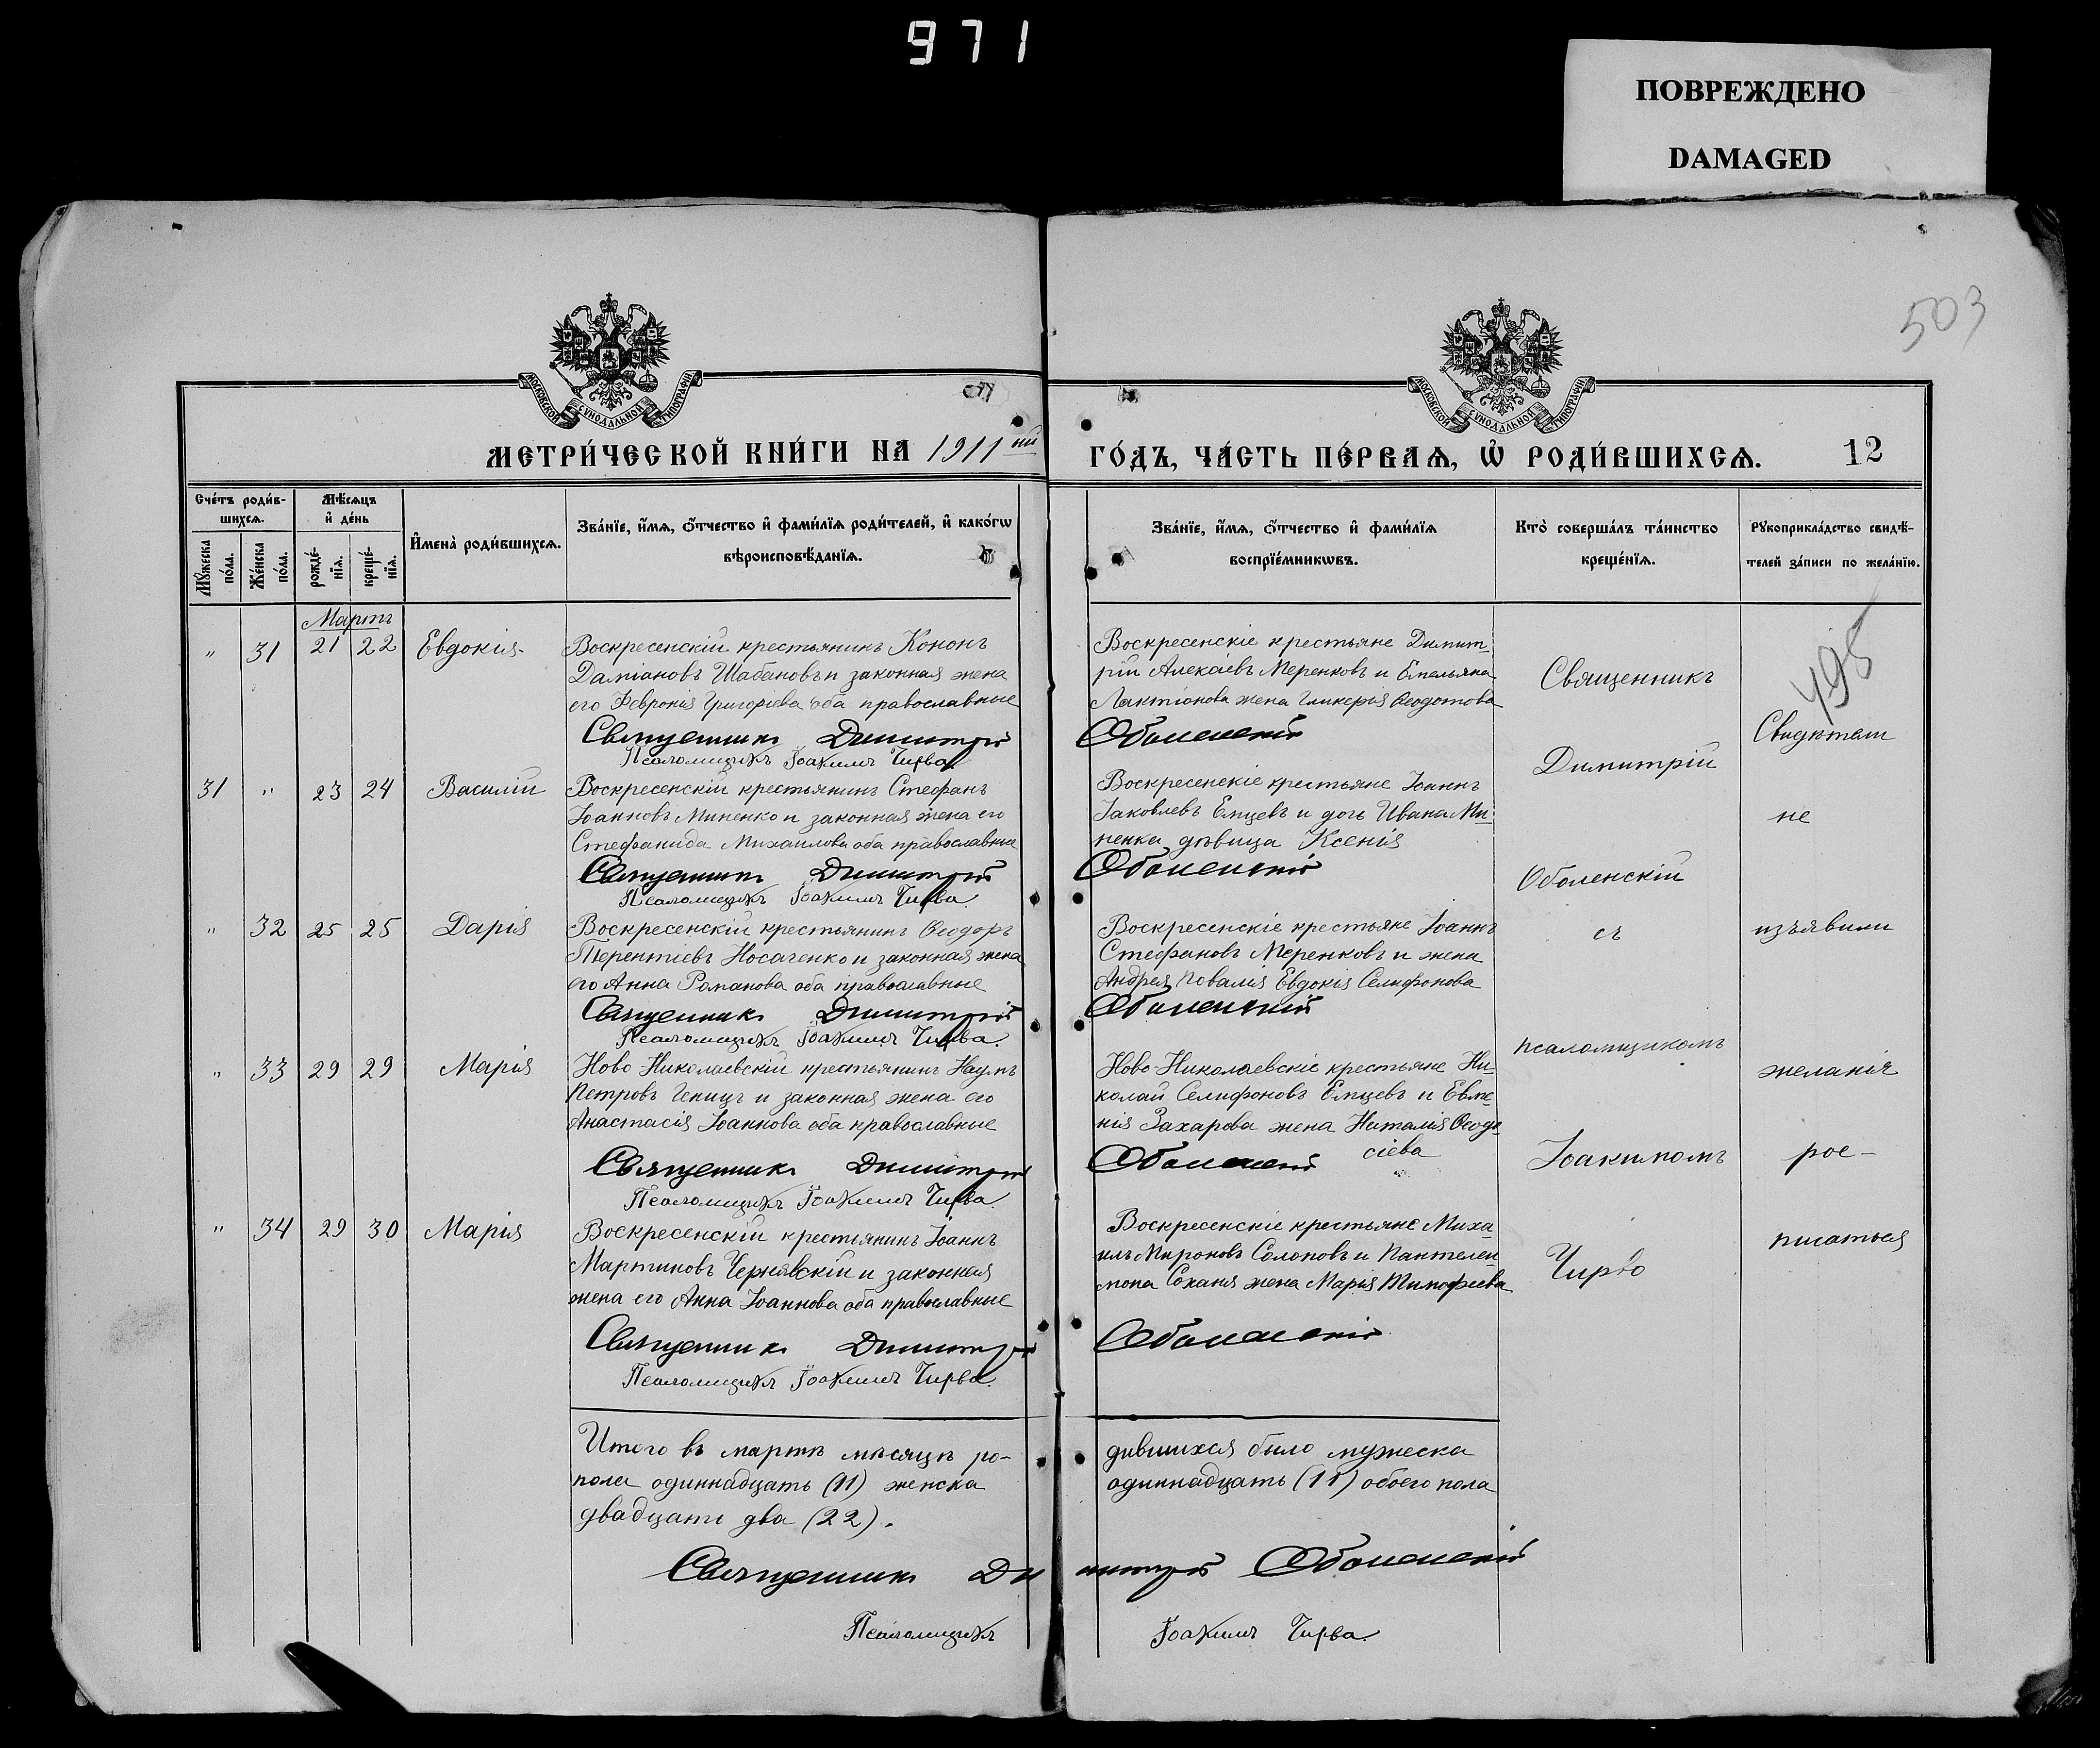 971
ПОВРЕЖДЕНО
DAMAGED
503
МОСКОВСКОЙ СѴНОДАЛЬНОЙ ТИПОГРАФІИ
МОСКОВСКОЙ СѴНОДАЛЬНОЙ ТИПОГРАФІИ
МЕТРИ́ЧЕСКОЙ КНИ́ГИ НА 1911ый
ГО́ДЪ, ЧА́СТЬ ПЕ́РВАѦ, Ѡ҆ РОДИ́ВШИХСѦ. 12
Сче́тъ роди́в-
шихсѧ.
Мꙋ́жеска
по́ла.
Же́нска
по́ла.
Мѣ́сѧцъ
и҆ де́нь
рожде́-
нїѧ.
креще́-
нїѧ.
И҆мена̀ роди́вшихсѧ.
Зва́нїе, и҆́мѧ, ѻ҆́тчество и҆ фами́лїѧ роди́телей, и҆ како́гѡ
вѣроисповѣ́данїѧ.
Зва́нїе, и҆́мѧ, ѻ҆́тчество и҆ фами́лїѧ
воспрїе́мникѡвъ.
Кто̀ соверша́лъ та́инство
креще́нїѧ.
Рꙋкоприкла́дство свидѣ́-
телей за́писи по жела́нїю.
Мартъ
" 31 21 22 Евдокія
Воскресенскій крестьянинъ Кононъ
Даміановъ Шабановъ и законная жена
его Февронія Григоріева оба православные
Священникъ Димитрій
Псаломщикъ Іоакимъ Чирва.
Воскресенскіе крестьяне Димит-
рій Алексіевъ Меренковъ и Емельяна
Лактіонова жена Гликерія Ѳеодотова
Оболенскій
31 " 23 24 Василій
Воскресенскій крестьянинъ Стефанъ
Іоанновъ Миненко и законная жена его
Стефанида Михаилова оба православные
Священникъ Димитрій
Псаломщикъ Іоакимъ Чирва.
Воскресенскіе крестьяне Іоаннъ
Іаковлевъ Емцевъ и дочь Ивана Ми-
ненка дѣвица Ксенія
Оболенскій
" 32 25 25 Дарія
Воскресенскій крестьянинъ Ѳеодоръ
Терентіевъ Носаченко и законная жена
его Анна Романова оба православные
Священникъ Димитрій
Псаломщикъ Іоакимъ Чирва.
Воскресенскіе крестьяне Іоаннъ
Стефановъ Меренковъ и жена
Андрея Коваля Евдокія Селифонова
Оболенскій
" 33 29 29 Марія
Ново Николаевскій крестьянинъ Наумъ
Петровъ Чепицъ и законная жена его
Анастасія Іоаннова оба православные
Священникъ Димитрій
Псаломщикъ Іоакимъ Чирва.
Ново Николаевскіе крестьяне Ни-
колай Селифоновъ Емцевъ и Евме-
нія Захарова жена Наталія Ѳеодо-
сіева
Оболенскій
" 34 29 30 Марія
Воскресенскій крестьянинъ Іоаннъ
Мартиновъ Чернявскій и законная
жена его Анна Іоаннова оба православные
Священникъ Димитрій
Псаломщикъ Іоакимъ Чирва.
Воскресенскіе крестьяне Миха-
илъ Мироновъ Солоповъ и Пантелеи-
мона Соханя жена Марія Тимофеева
Оболенскій
Священникъ
Димитрій
Оболенскій
съ
псаломщикомъ
Іоакимомъ
Чирво
495
Свидѣтели
не
изъявили
желанія
рос-
писаться
Итого въ мартѣ мѣсяцѣ ро- дившихся было мужеска
пола одиннадцать (11) женска одиннадцать (11) обоего пола
двадцать два (22).
Священникъ Димитрій Оболенскій
Псаломщикъ Іоакимъ Чирва.